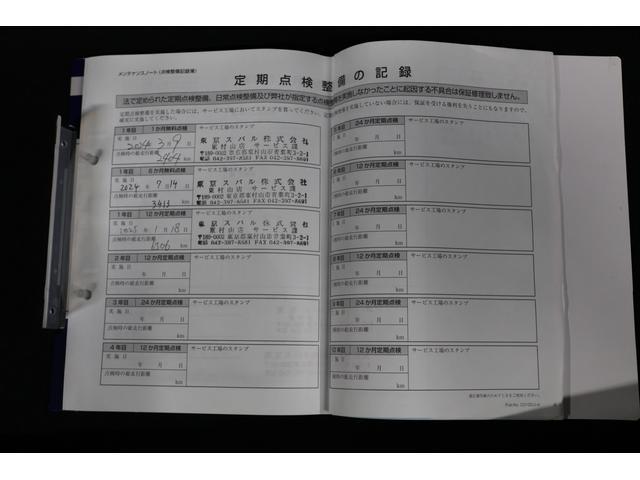 メンテナンスノート(点検整備記録簿)
定期点検整備の記録
法で定められた定期点検整備、日常点検整備及び弊社が指定する点検
を実施しなかったことに起因する不具合は保証修理致しません。
定期点検整備を実施した場合には、サービス工場においてスタンプを貰ってください。
1年目 1か月無料点検 サービス工場のスタンプ
実施日
2024年3月9日
東京スバル株式会社
東村山店 サービス課
〒189-0002 東京都東村山市青葉町3-2-1
電話 042-397-8581 FAX 042-397-8601
点検時の総走行距離
2404 km
1年目 6か月無料点検 サービス工場のスタンプ
実施日
2024年7月14日
東京スバル株式会社
東村山店 サービス課
〒189-0002 東京都東村山市青葉町3-2-1
電話 042-397-8581 FAX 042-397-8601
点検時の総走行距離
km
1年目 12か月定期点検 サービス工場のスタンプ
実施日
2025年1月18日
東京スバル株式会社
東村山店 サービス課
〒189-0002 東京都東村山市青葉町3-2-1
電話 042-397-8581 FAX 042-397-8601
点検時の総走行距離
6506 km
2年目 12か月定期点検 サービス工場のスタンプ
実施日
年 月 日
点検時の総走行距離
km
3年目 24か月定期点検 サービス工場のスタンプ
実施日
年 月 日
点検時の総走行距離
km
4年目 12か月定期点検 サービス工場のスタンプ
実施日
年 月 日
点検時の総走行距離
km
24か月定期点検 サービス工場のスタンプ
年 月 日
総走行距離
km
6年目 12か月定期点検 サービス工場のスタンプ
年 月 日
総走行距離
km
7年目 24か月定期点検 サービス工場のスタンプ
年 月 日
総走行距離
km
8年目 12か月定期点検 サービス工場のスタンプ
年 月 日
の総走行距離
km
9年目 24か月定期点検 サービス工場のスタンプ
実施日
年 月 日
点検時の総走行距離
km
10年目 12か月定期点検 サービス工場のスタンプ
実施日
年 月 日
点検時の総走行距離
km